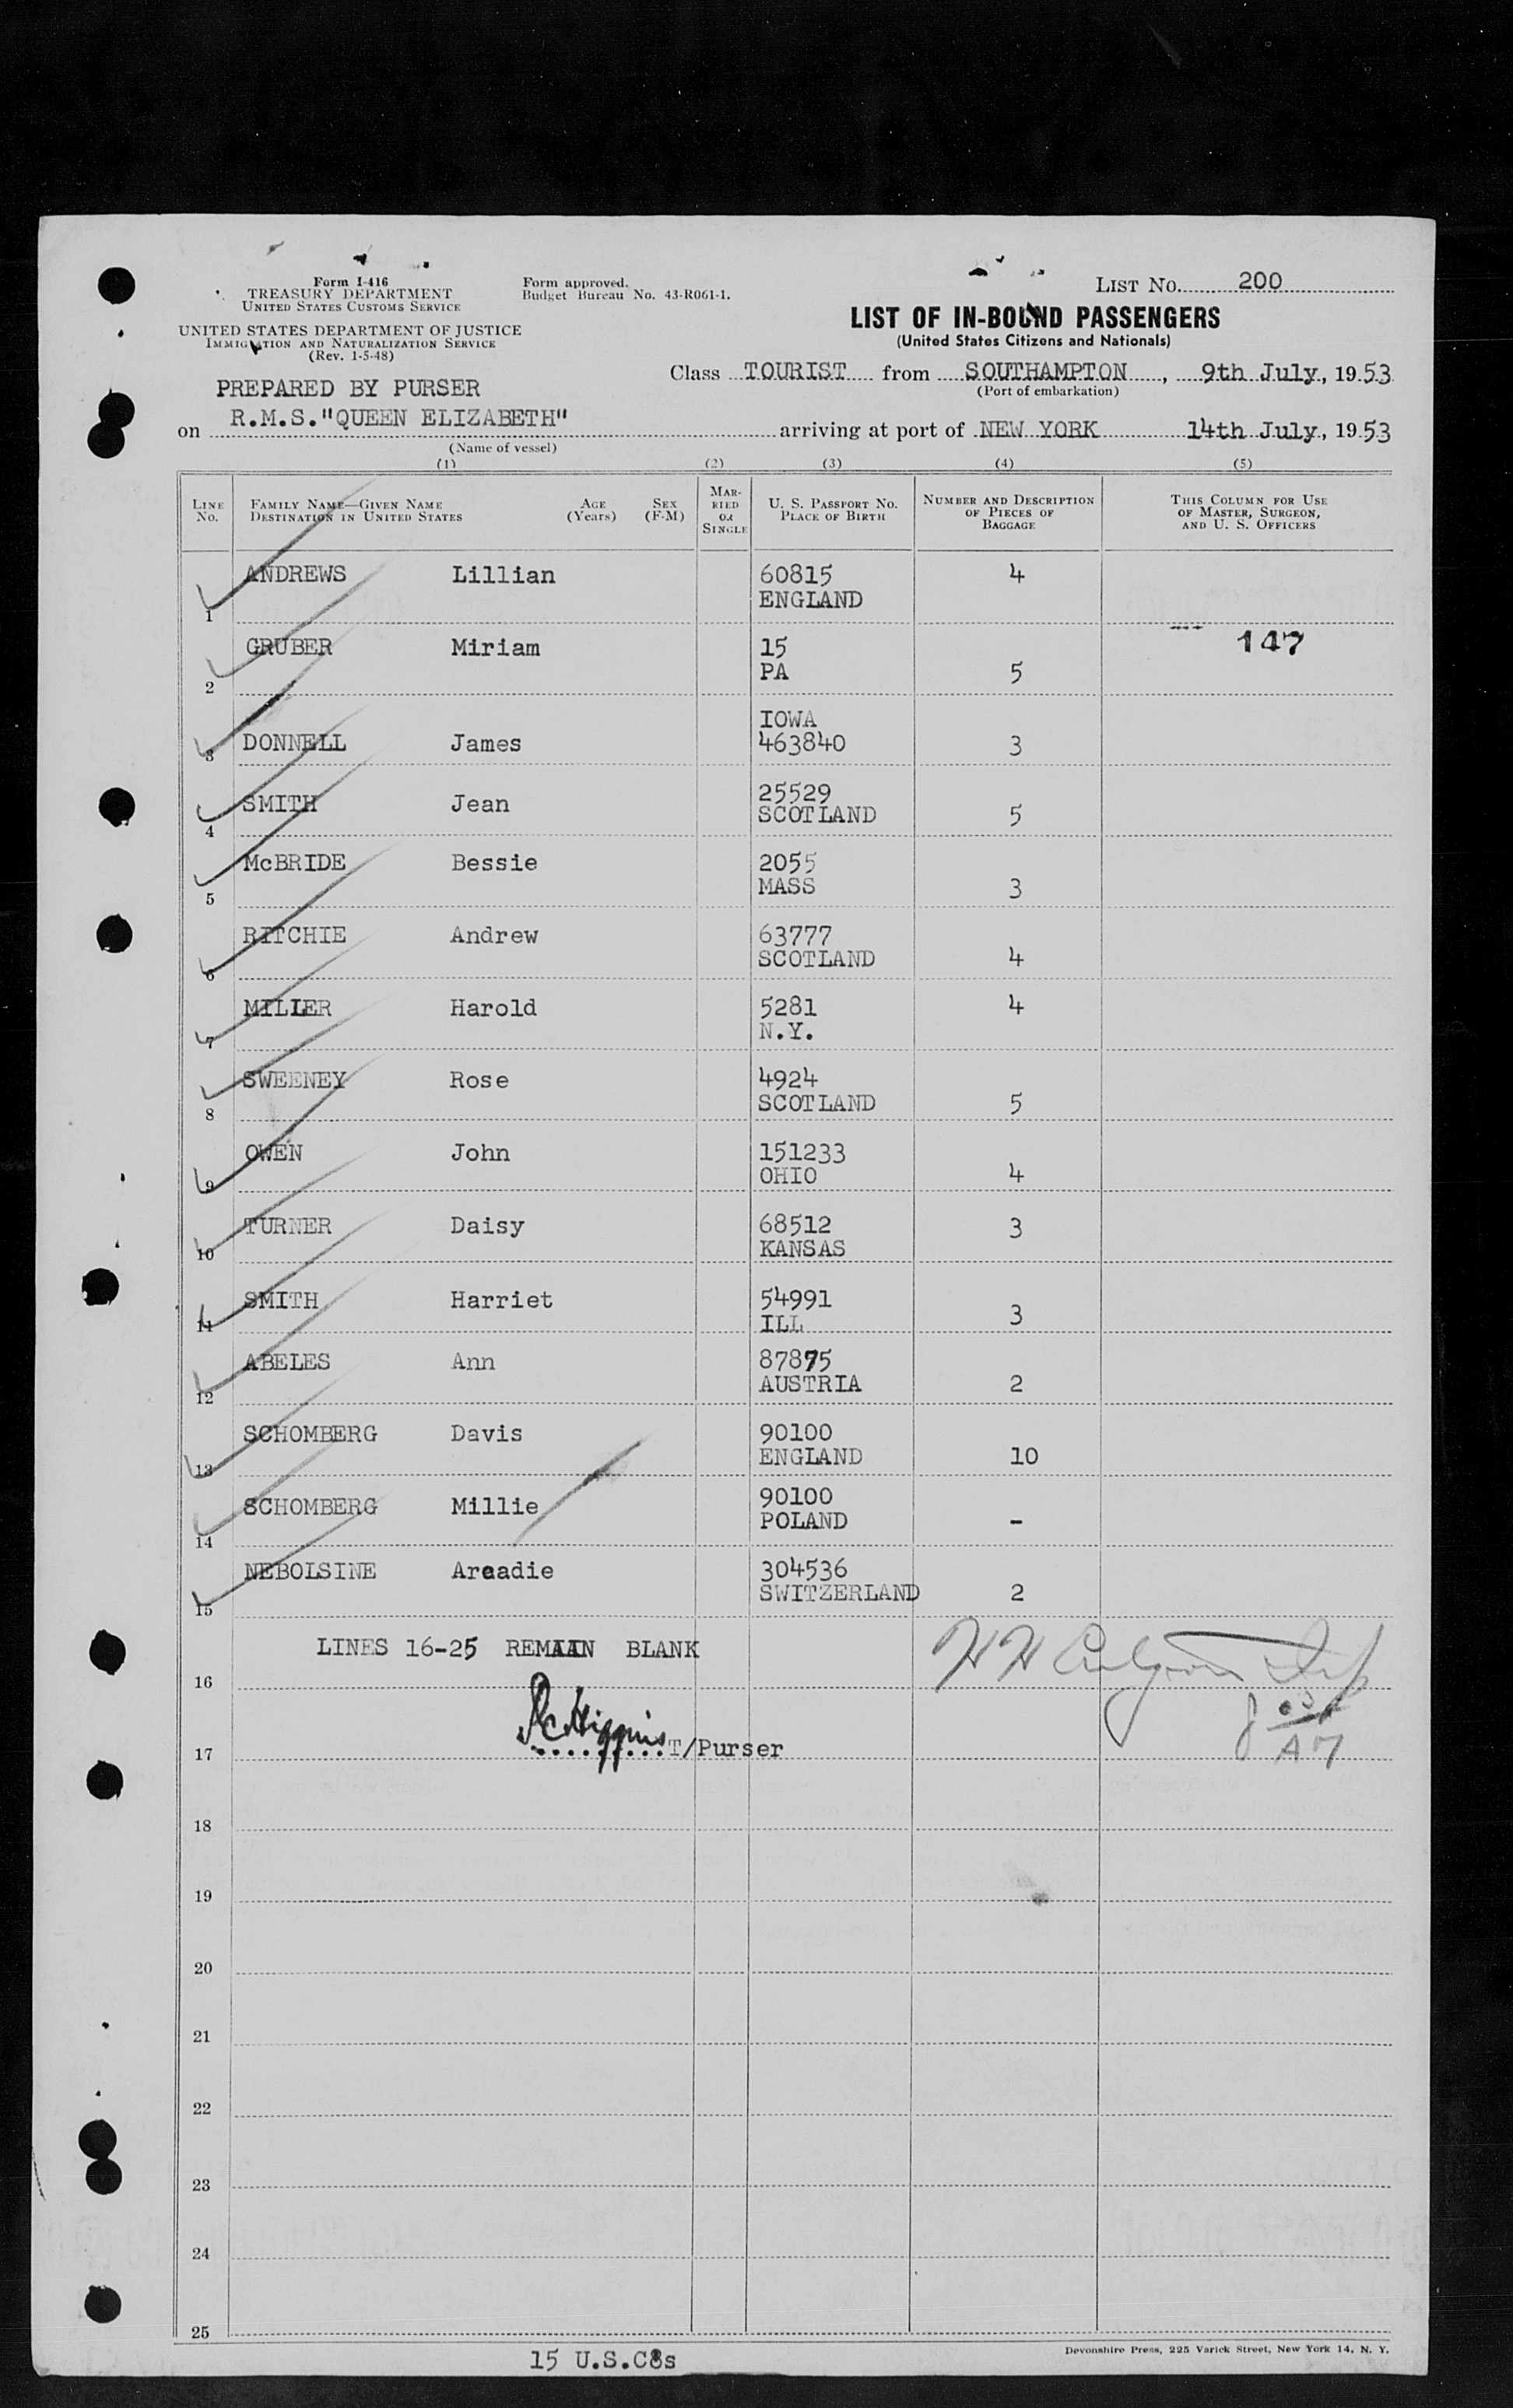 Form I-416
TREASURY DEPARTMENT
UNITED STATES CUSTOMS SERVICE
UNITED STATES DEPARTMENT OF JUSTICE
IMMIGRATION AND NATURALIZATION SERVICE
(Rev. 1-5-48)
Form approved.
Budget Bureau No. 43-R061-1.
LIST NO. 200
LIST OF IN-BOUND PASSENGERS
(United States Citizens and Nationals)
Class TOURIST from SOUTHAMPTON, 9th July, 1953
(Port of embarkation)
PREPARED BY PURSER
on R.M.S."QUEEN ELIZABETH" arriving at port of NEW YORK 14th July, 1953
(Name of vessel)
(1) (2) (3) (4) (5)
LINE No.
FAMILY NAME—GIVEN NAME
DESTINATION IN UNITED STATES
AGE (Years)
SEX (F-M)
MARRIED OR SINGLE
U. S. PASSPORT NO.
PLACE OF BIRTH
NUMBER AND DESCRIPTION
OF PIECES OF
BAGGAGE
THIS COLUMN FOR USE
OF MASTER, SURGEON,
AND U. S. OFFICERS
1 ANDREWS Lillian 60815 4
ENGLAND
147
2 GRUBER Miriam 15
PA 5
IOWA
3 DONNELL James 463840 3
4 SMITH Jean 25529
SCOTLAND 5
5 McBRIDE Bessie 2055
MASS 3
6 RITCHIE Andrew 63777
SCOTLAND 4
7 MILLER Harold 5281 4
N.Y.
8 SWEENEY Rose 4924
SCOTLAND 5
9 OWEN John 151233
OHIO 4
10 TURNER Daisy 68512 3
KANSAS
11 SMITH Harriet 54991
ILL 3
12 ABELES Ann 87875
AUSTRIA 2
13 SCHOMBERG Davis 90100
ENGLAND 10
14 SCHOMBERG Millie 90100
POLAND -
15 NEBOLSINE Arcadie 304536
SWITZERLAND 2
LINES 16-25 REMAIN BLANK
16
17 T/Purser
18
19
20
21
22
23
24
25
15 U.S.C8s
Devonshire Press, 225 Varick Street, New York 14, N. Y.